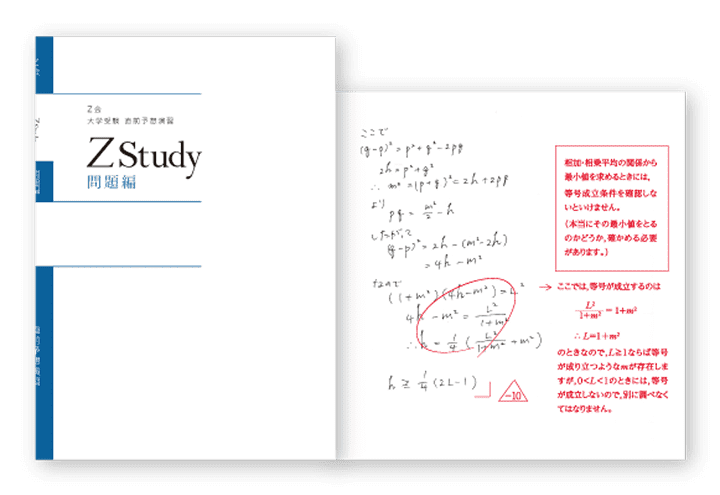 Z会
大学受験 直前予想演習
Z Study
問題編
ここで
(q-p)² = p²+q²-2pq
2h = p²+q²
∴ m² = (p+q)² = 2h+2pq
より
pq = m²/2 - h
したがって
(q-p)² = 2h-(m²-2h)
= 4h-m²
なので
(1+m²)(4h-m²) = L²
4h-m² = L²/1+m²
∴ h = 1/4 (L²/1+m² + m²)
h ≧ 1/4 (2L-1)
-10
相加・相乗平均の関係から
最小値を求めるときには,
等号成立条件を確認しな
いといけません。
(本当にその最小値をとる
のかどうか,確かめる必要
があります。)
→ ここでは,等号が成立するのは
L²/1+m² = 1+m²
∴ L=1+m²
のときなので,L≧1ならば等号
が成り立つようなmが存在しま
すが,0<L<1のときには,等号
が成立しないので,別に調べなく
てはなりません。